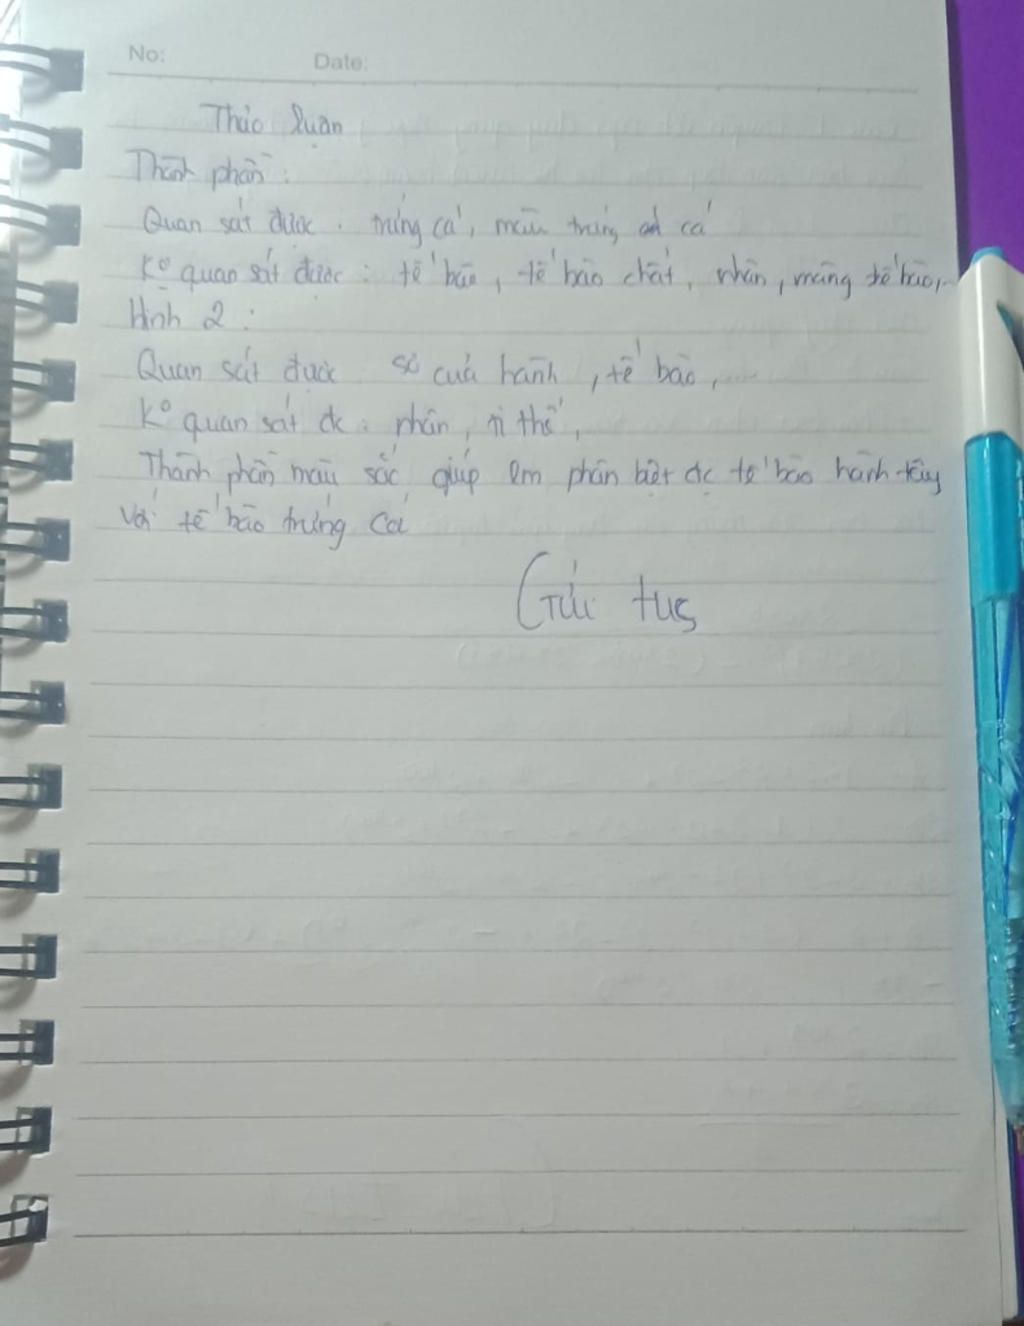 No: Date:
Thảo luận
Thành phần:
Quan sát được: trứng cá, màu trứng cá
Ko quan sát được: tế bào, tế bào chất, nhân, màng tế bào,...
Hình 2:
Quan sát được số của hành, tế bào,...
Ko quan sát đc: nhân, ti thể,
Thành phần màu sắc giúp em phân biệt đc tế bào hành tây
với tế bào trứng cá